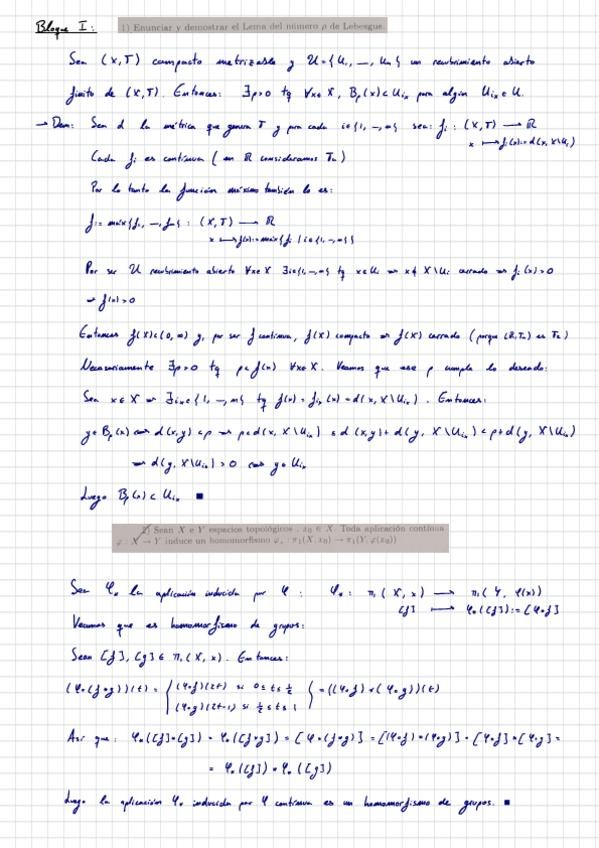 Bloque I: 1) Enunciar y demostrar el Lema del número ρ de Lebesgue.
Sea (X,T) compacto metrizable y U={U₁, ..., Uₙ} un recubrimiento abierto
finito de (X,T). Entonces: ∃ρ>0 tq ∀x∈X, Bρ(x)⊂U_{iₓ} para algún U_{iₓ}∈U.
→ Dem: Sea d la métrica que genera T y para cada i∈{1, ..., n} sea: fᵢ : (X,T) → ℝ
x ↦ fᵢ(x):=d(x, X\Uᵢ)
Cada fᵢ es continua (en ℝ consideramos Tᵤ)
Por lo tanto la función máximo también lo es:
f:= máx{f₁, ..., fₙ} : (X,T) → ℝ
x ↦ f(x):=máx{fᵢ / i∈{1, ..., n}}
Por ser U recubrimiento abierto ∀x∈X ∃i∈{1, ..., n} tq x∈Uᵢ ⇒ x∉X\Uᵢ cerrado ⇒ fᵢ(x)>0
⇒ f(x)>0
Entonces f(X)⊂(0,∞) y, por ser f continua, f(X) compacto ⇒ f(X) cerrado (porque (ℝ,Tᵤ) es T₂)
Necesariamente ∃ρ>0 tq ρ<f(x) ∀x∈X. Veamos que ese ρ cumple lo deseado:
Sea x∈X ⇒ ∃iₓ∈{1, ..., n} tq f(x)=f_{iₓ}(x)=d(x, X\U_{iₓ}). Entonces:
y∈Bρ(x) ⇔ d(x,y)<ρ ⇒ ρ<d(x, X\U_{iₓ}) ≤ d(x,y)+d(y, X\U_{iₓ}) < ρ+d(y, X\U_{iₓ})
⇒ d(y, X\U_{iₓ})>0 ⇔ y∈U_{iₓ}
Luego Bρ(x)⊂U_{iₓ} ■
2) Sean X e Y espacios topológicos , x₀ ∈ X. Toda aplicación continua
φ : X → Y induce un homomorfismo φ∗ : π₁(X, x₀) → π₁(Y, φ(x₀))
Sea φ∗ la aplicación inducida por φ : φ∗: π₁(X, x) → π₁(Y, φ(x))
[f] ↦ φ∗([f]):=[φ∘f]
Veamos que es homomorfismo de grupos:
Sean [f], [g]∈π₁(X, x). Entonces:
(φ∘(f∗g))(t) = { (φ∘f)(2t) si 0≤t≤½
(φ∘g)(2t-1) si ½≤t≤1 } = ((φ∘f)∗(φ∘g))(t)
Así que: φ∗([f]∗[g]) = φ∗([f∗g]) = [φ∘(f∗g)] = [(φ∘f)∗(φ∘g)] = [φ∘f]∗[φ∘g] =
= φ∗([f])∗φ∗([g])
Luego la aplicación φ∗ inducida por φ continua es un homomorfismo de grupos. ■